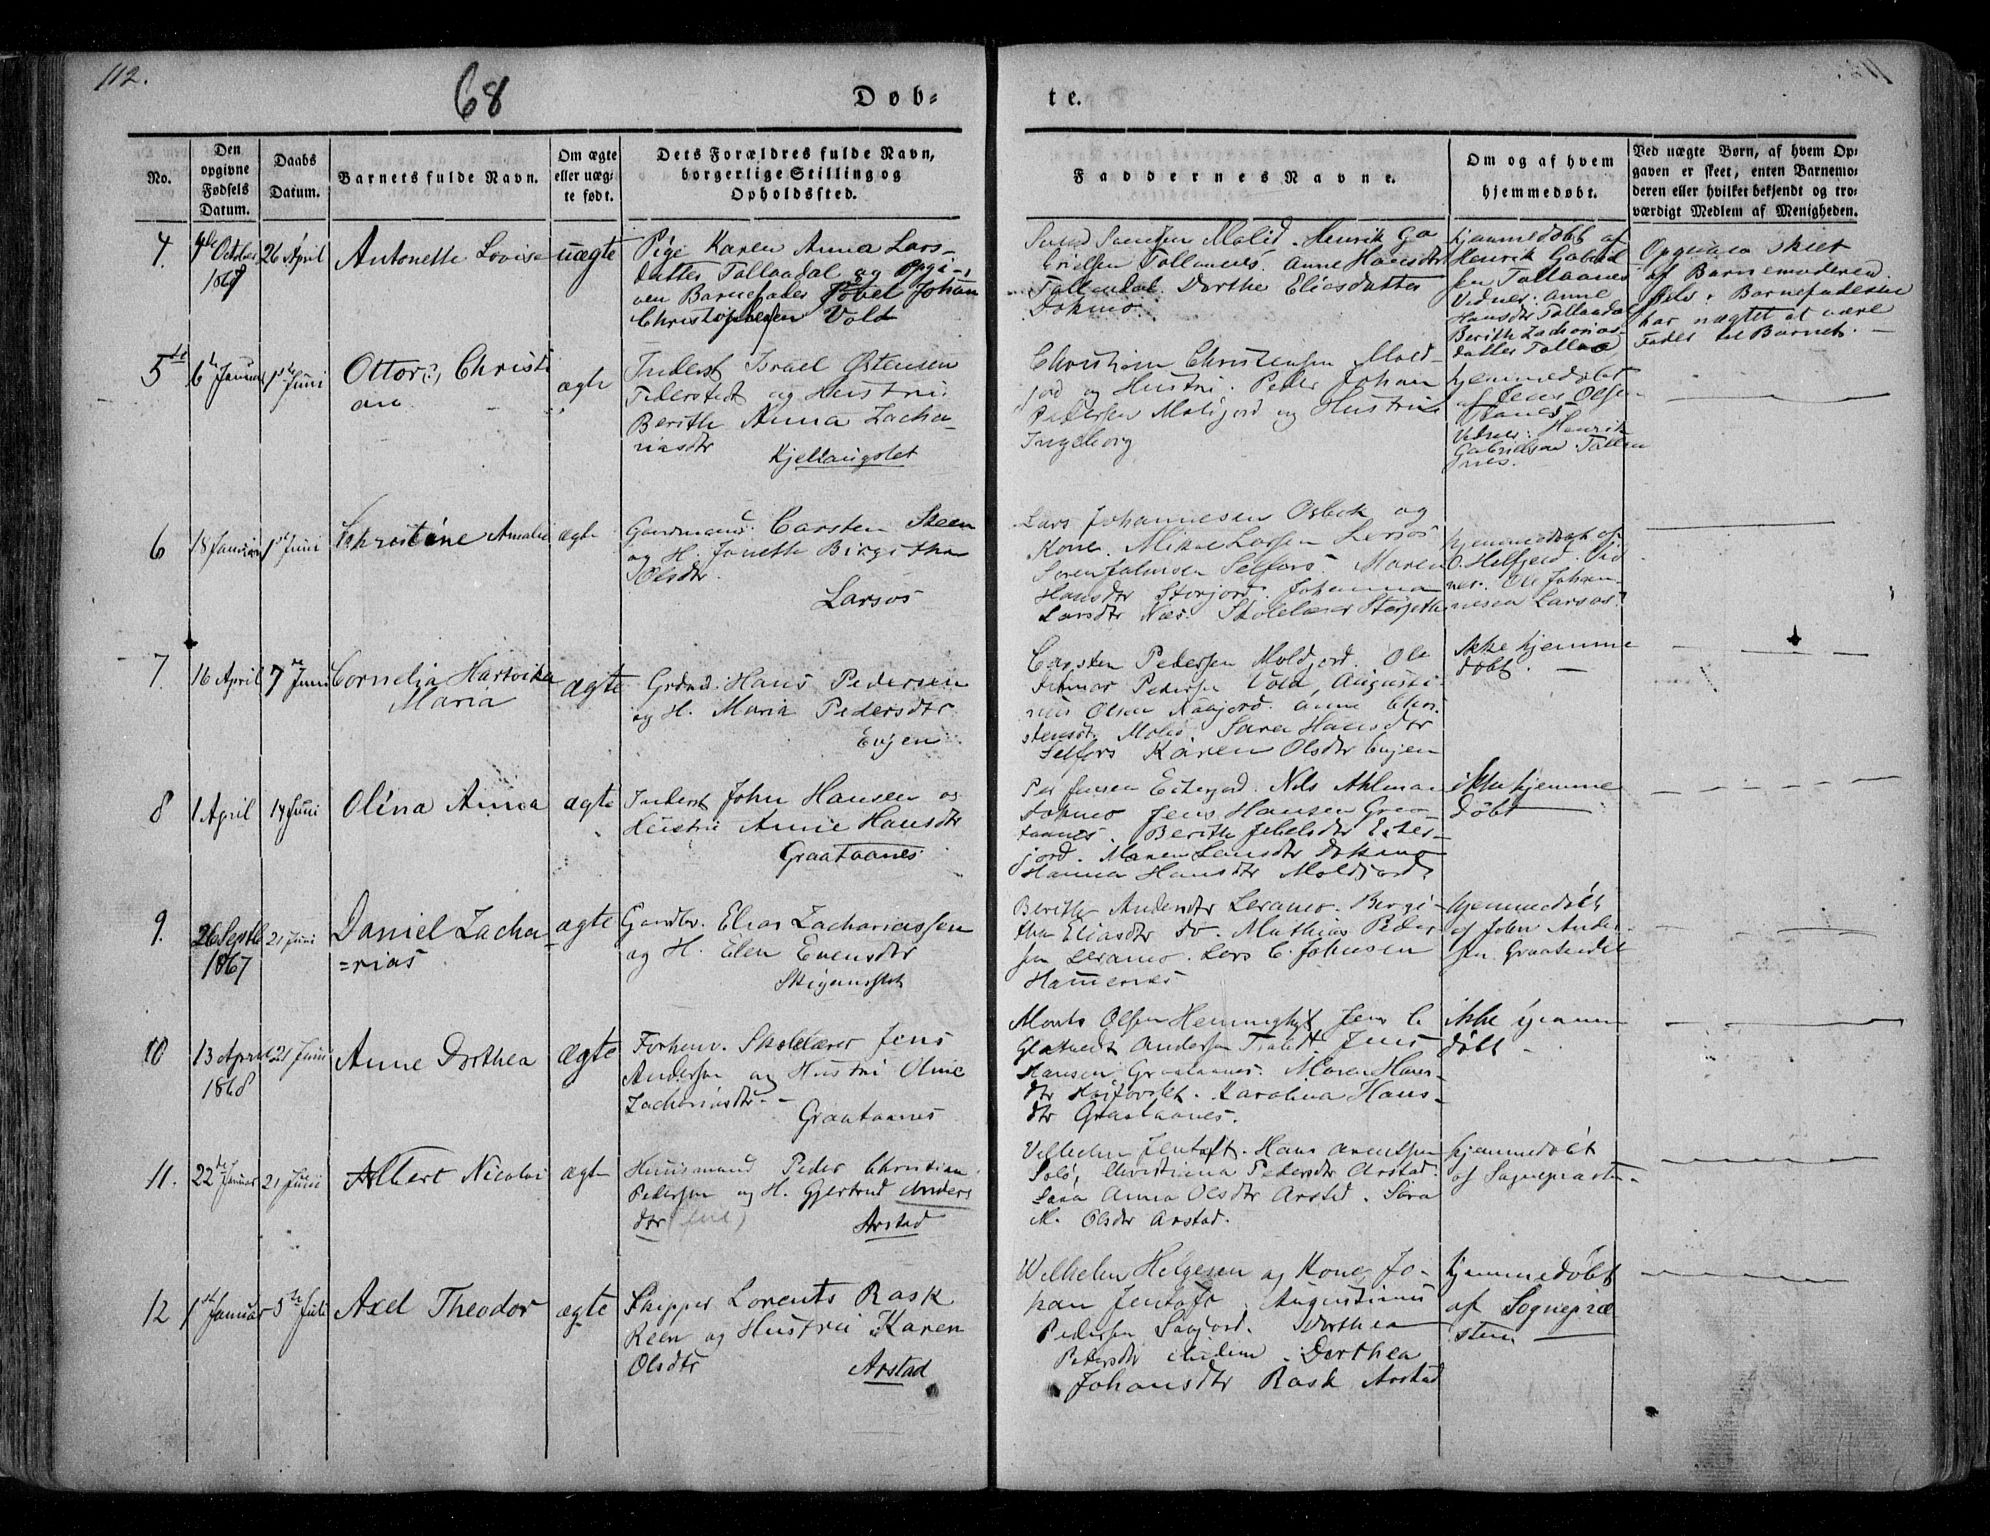 112.
68
Døb-
te.
No.
Den opgivne Fødsels Datum.
Daabs Datum.
Barnets fulde Navn.
Om ægte eller uægte født.
Dets Forældres fulde Navn, borgerlige Stilling og Opholdssted.
Faddernes Navne.
Om og af hvem hjemmedøbt.
Ved uægte Børn, af hvem Opgaven er skeet, enten Barnemoderen eller hvilket bekjendt og troværdigt Medlem af Menigheden.
4.
October
26 April
Antonette Lovise
uægte
Pige Karen Anna Lars-
datter Tollaadal og Opgi-
ven Barnefader Johan
Christophersen Vold
Molid. Henrik Ga
brielsen Tollaanes. Anne Hansdtr
Dorthe Eliasdatter
Dokmo
hjemmedøbt af
Henrik Gabriel
sen Tollaanes
Vidner: Anne
Hansdtr Tollaadal
Berith Zacharias
datter Tollaa
Opgaven skeet
af Barnemoderen.
Barnefaderen
har nægtet at være
Fader til Barnet.
5
6 Januar
1ste Juni
Ottor(?) Christi
an
ægte
Inderst Israel Ostensen
og Hustru
Berith Anna Zacha-
riasdtr
Christian Christensen Mold-
jord og Hustru. Peder Johan
Pedersen Moldjord og Hustru
Ingeborg
hjemmedøbt
af Jens Olsen
Vidner: Henrik
Gabrielsen Tollaa
nes.
6
18 Januar
1ste Juni
Christine Amalie
ægte
Gaardmand Carsten Steen
og H. Janette Birgitha
Olsdtr.
Larsos
Lars Johannesen Osbak og
Kone. Mikal Larsen Larsos
Søren Johnsen Selfors. Maren
Hansdtr Storjord. Johanna
Larsdtr Næs. Skolelærer
hjemmedøbt af
Vid
ner. Ole Johan-
nesen Larsos.
7.
16 April
7de Juni
Cornelia Hartvika
Maria
ægte
Grdmd. Hans Pedersen
og H. Maria Pedersdtr
Evjen
Carsten Pedersen Moldjord. Ole
Pedersen Vold, Augusti-
nus Olsen. Anne Chri-
stensdtr Molid Sara Hansdtr
Selfors Karen Olsdtr Evjen
Ikke hjemme
døbt.
8
1 April
14 Juni
Olina Anna
ægte
Inderst John Hansen og
Hustru Anne Hansdtr
Graataanes
Jensen Eiterjord. Nils Ahlman
Dokmo Jens Hansen Graa-
taanes. Berith Eiter-
jord. Maren Dokmo
Hanna Hansdtr Moldjord.
ikke hjemme
døbt
9.
26 Septb
1867
21 Juni
Daniel Zacha-
=rias
ægte
Gaardbr. Elias Zachariassen
og H. Elen Evensdtr
Berith Andersdtr Leramo. Birgi-
tha Eliasdtr do. Mathias Peder
sen Leramo. Lars C. Johnsen
Hamernes
hjemmedøbt
af John Ander-
sen
10
13 April
1868
21 Juni
Anne Dorthea
ægte
Forhenv. Skolelærer Jens
Andersen og Hustru Oline
Zachariasdtr.
Graataanes
Olsen Jens C.
Andersen Jens
Hansen Graataanes. Maren Hans-
dtr. Karolina Hans-
dtr Graataanes.
ikke hjemme
døbt
11.
22de Januar
21 Juni
Albert Nicolai
ægte
Huusmand Peder Christian
Pedersen og H. Gjertrud Anders
dtr
Arstad
Vilhelm Jentoft. Hans
Christiana Pedersdtr Arstad
Anna Olsdtr Arstad. Sara
M. Olsdtr Arstad.
hjemmedøbt
af Sognepræsten.
12
1ste Januar
5te Juli
Axel Theodor
ægte
Skipper Lorents Rask
Reen og Hustru Karen
Olsdtr
Arstad
Wilhelm Helgesen og Kone, Jo-
han Jentoft. Augustinus
Pedersen. Dorthea
Pedersdtr. Dorthea
Johansdtr Rask Arstad
hjemmedøbt
af Sognepræ
sten